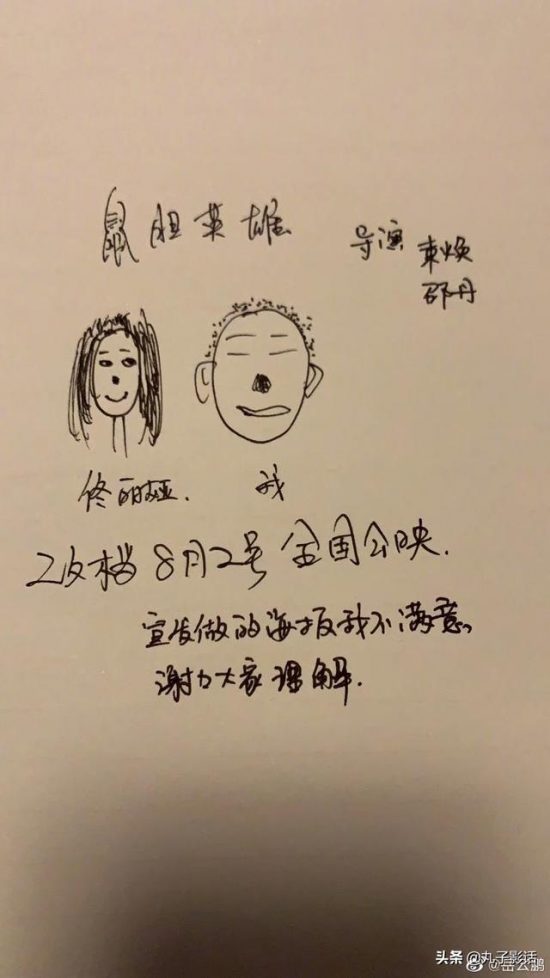 鼠胆英雄
导演 束焕
邵丹
佟丽娅. 我
改档 8月2号 全国公映.
宣发做的海报我不满意。
谢为大家理解.
头条 @丸子影话
@岳云鹏